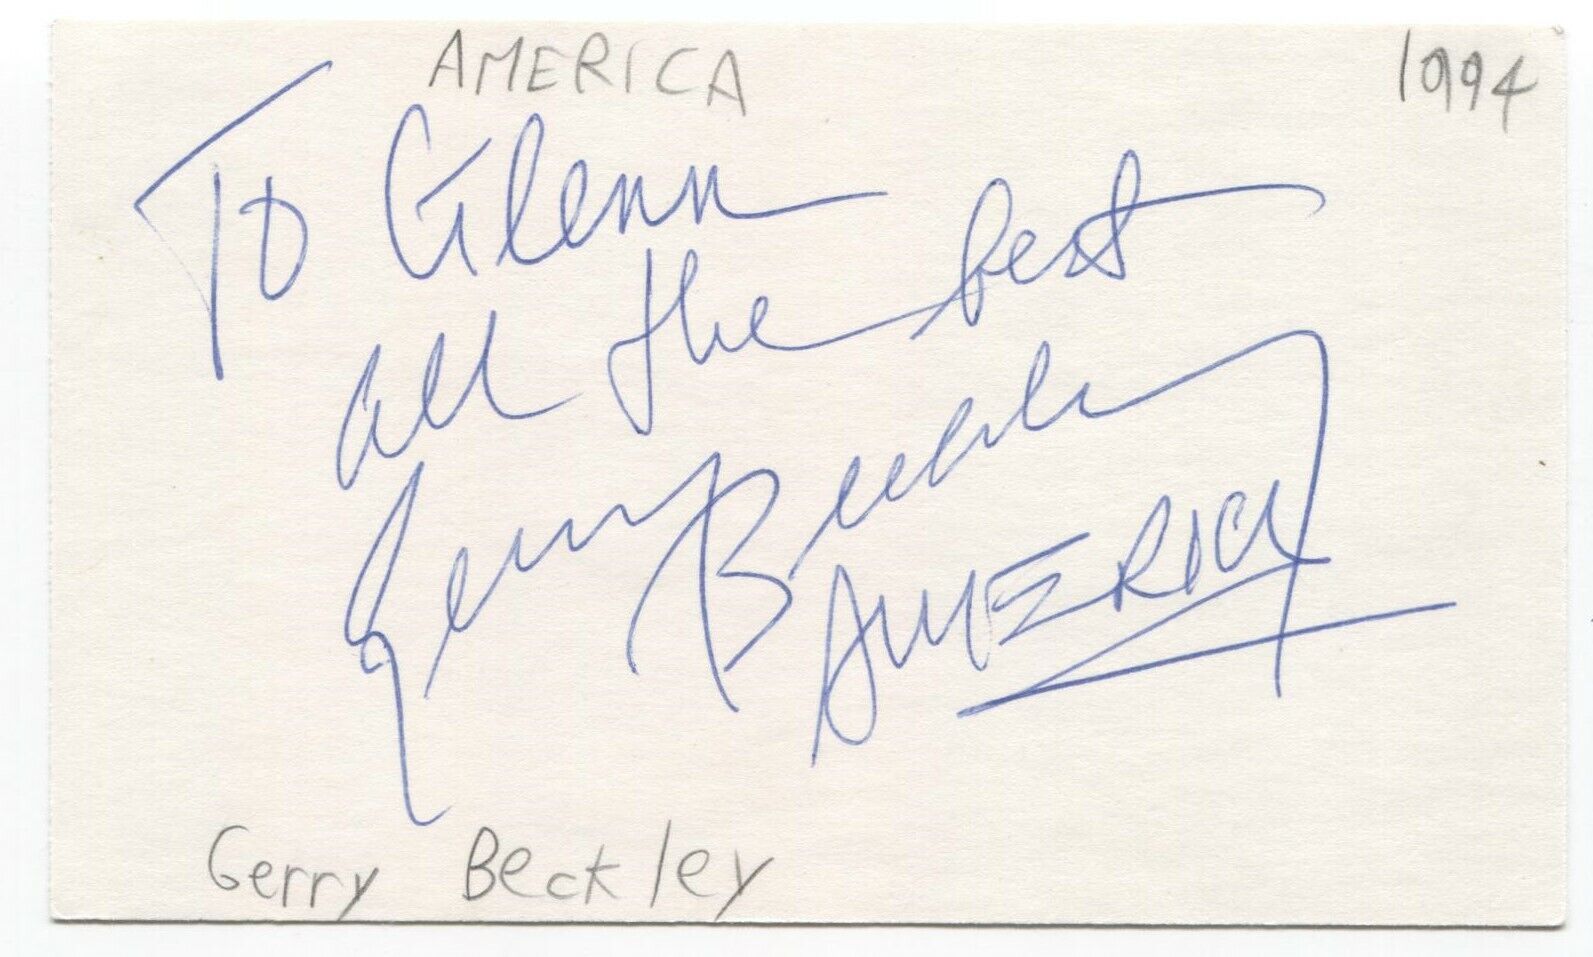 AMERICA 1994
To Glenn
all the best
Gerry Beckley
AMERICA
Gerry Beckley